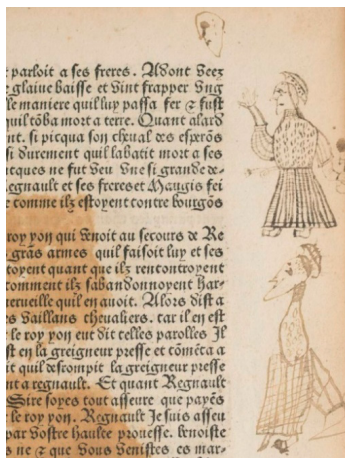 parloit a ses freres. Adont Veez
glaiue baisse et Vint frapper Vng
le maniere quil luy passa fer ⁊ fust
quil tõba mort a terre. Quant alard
nt. si picqua son cheual des esperõs
si durement quil labatit mort a ses
tcques ne fut Veu Vne si grande de-
egnault et ses freres et Maugis fei
comme ilz estoyent contre bourgõs
roy yon qui Venoit au secours de Re
grãs armes quil faisoit luy et ses
toyent quant que ilz rencontroyent
comment ilz sabandonnoyent Har-
rerueille quil en auoit. Alors dist a
s Vaillans cheualiers. car il en est
le roy yon eut dit telles parolles Il
st en la greigneur presse et cõmẽca a
it quil desrompit la greigneur presse
nt a regnault. Et quant Regnault
Sire soyes tout asseure que payés
le roy yon. Regnault Je suis asseu
par Vostre haulte prouesse. benoiste
s ne ⁊ que Vous Venistes es mar-